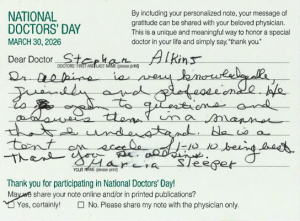 NATIONAL
DOCTORS' DAY
MARCH 30, 2026
By including your personalized note, your message of
gratitude can be shared with your beloved physician.
This is a unique and meaningful way to honor a special
doctor in your life and simply say, "thank you."
Dear Doctor Stephan Alkins
DOCTORS' FIRST AND LAST NAME (please print)
Dr. Alkins is very knowledgable,
friendly and professional. He
is open to questions and
answers them in a manner
that I understand. He is a
ten on scale of 1-10 10 being best.
Thank you Dr. Alkins.
Marcia Sleeper
YOUR NAME (please print)
Thank you for participating in National Doctors' Day!
May we share your note online and/or in printed publications?
Yes, certainly! No. Please share my note with the physician only.